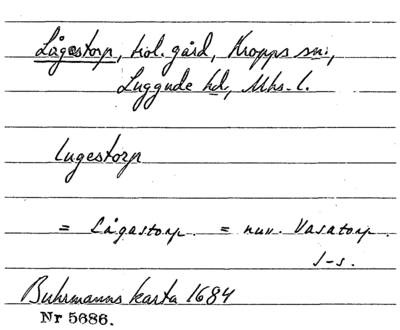 Lågestorp, hist. gård, Kropps sn,
Luggude hd, Mhs. l.
lugestorp
= Lågastorp. = nuv. Vasatorp.
J-s.
Buhrmanns karta 1684
Nr 5686.